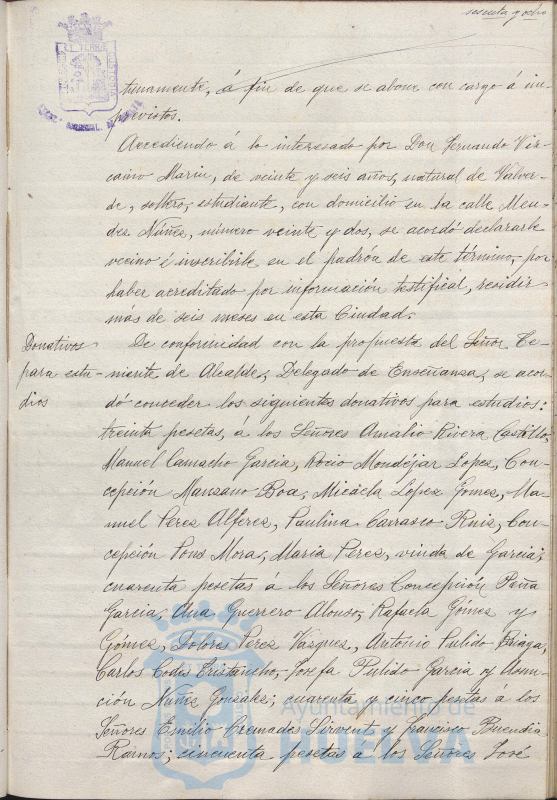 sesenta y ocho
tunamente, á fin de que se abone con cargo á im-
previstos.
Accediendo á lo interesado por Don Fernando Viz-
caino Marin, de veinte y seis años, natural de Valver-
de, soltero, estudiante, con domicilio en la calle Men-
dez Núñez, número veinte y dos, se acordó declararle
vecino é inscribirle en el padrón de este término, por
haber acreditado por información testifical, residir
más de seis meses en esta Ciudad.
Donativos
para estu-
dios
De conformidad con la propuesta del Señor Te-
niente de Alcalde, Delegado de Enseñanza, se acor-
dó conceder los siguientes donativos para estudios:
treinta pesetas, á los Señores Amalio Rivera Castillo,
Manuel Camacho Garcia, Rocio Mondéjar Lopez, Con-
cepción Manzano Boa, Micaela Lopez Gomez, Ma-
nuel Perez Alferez, Paulina Carrasco Ruiz, Con-
cepción Pons Mora, Maria Perez, viuda de Garcia;
cuarenta pesetas á los Señores Concepción Peña
Garcia, Ana Guerrero Alonso, Rafaela Gómez y
Gómez, Dolores Perez Vazquez, Antonio Pulido
Carlos Codes Tristancho, Josefa Pulido Garcia y Asun-
ción Nuñez Gonzalez; cuarenta y cinco pesetas á los
Señores Emilio Cremades Sirvent y Francisco Buendia
Ramos; cincuenta pesetas á los Señores José
Ayuntamiento de
HUELVA